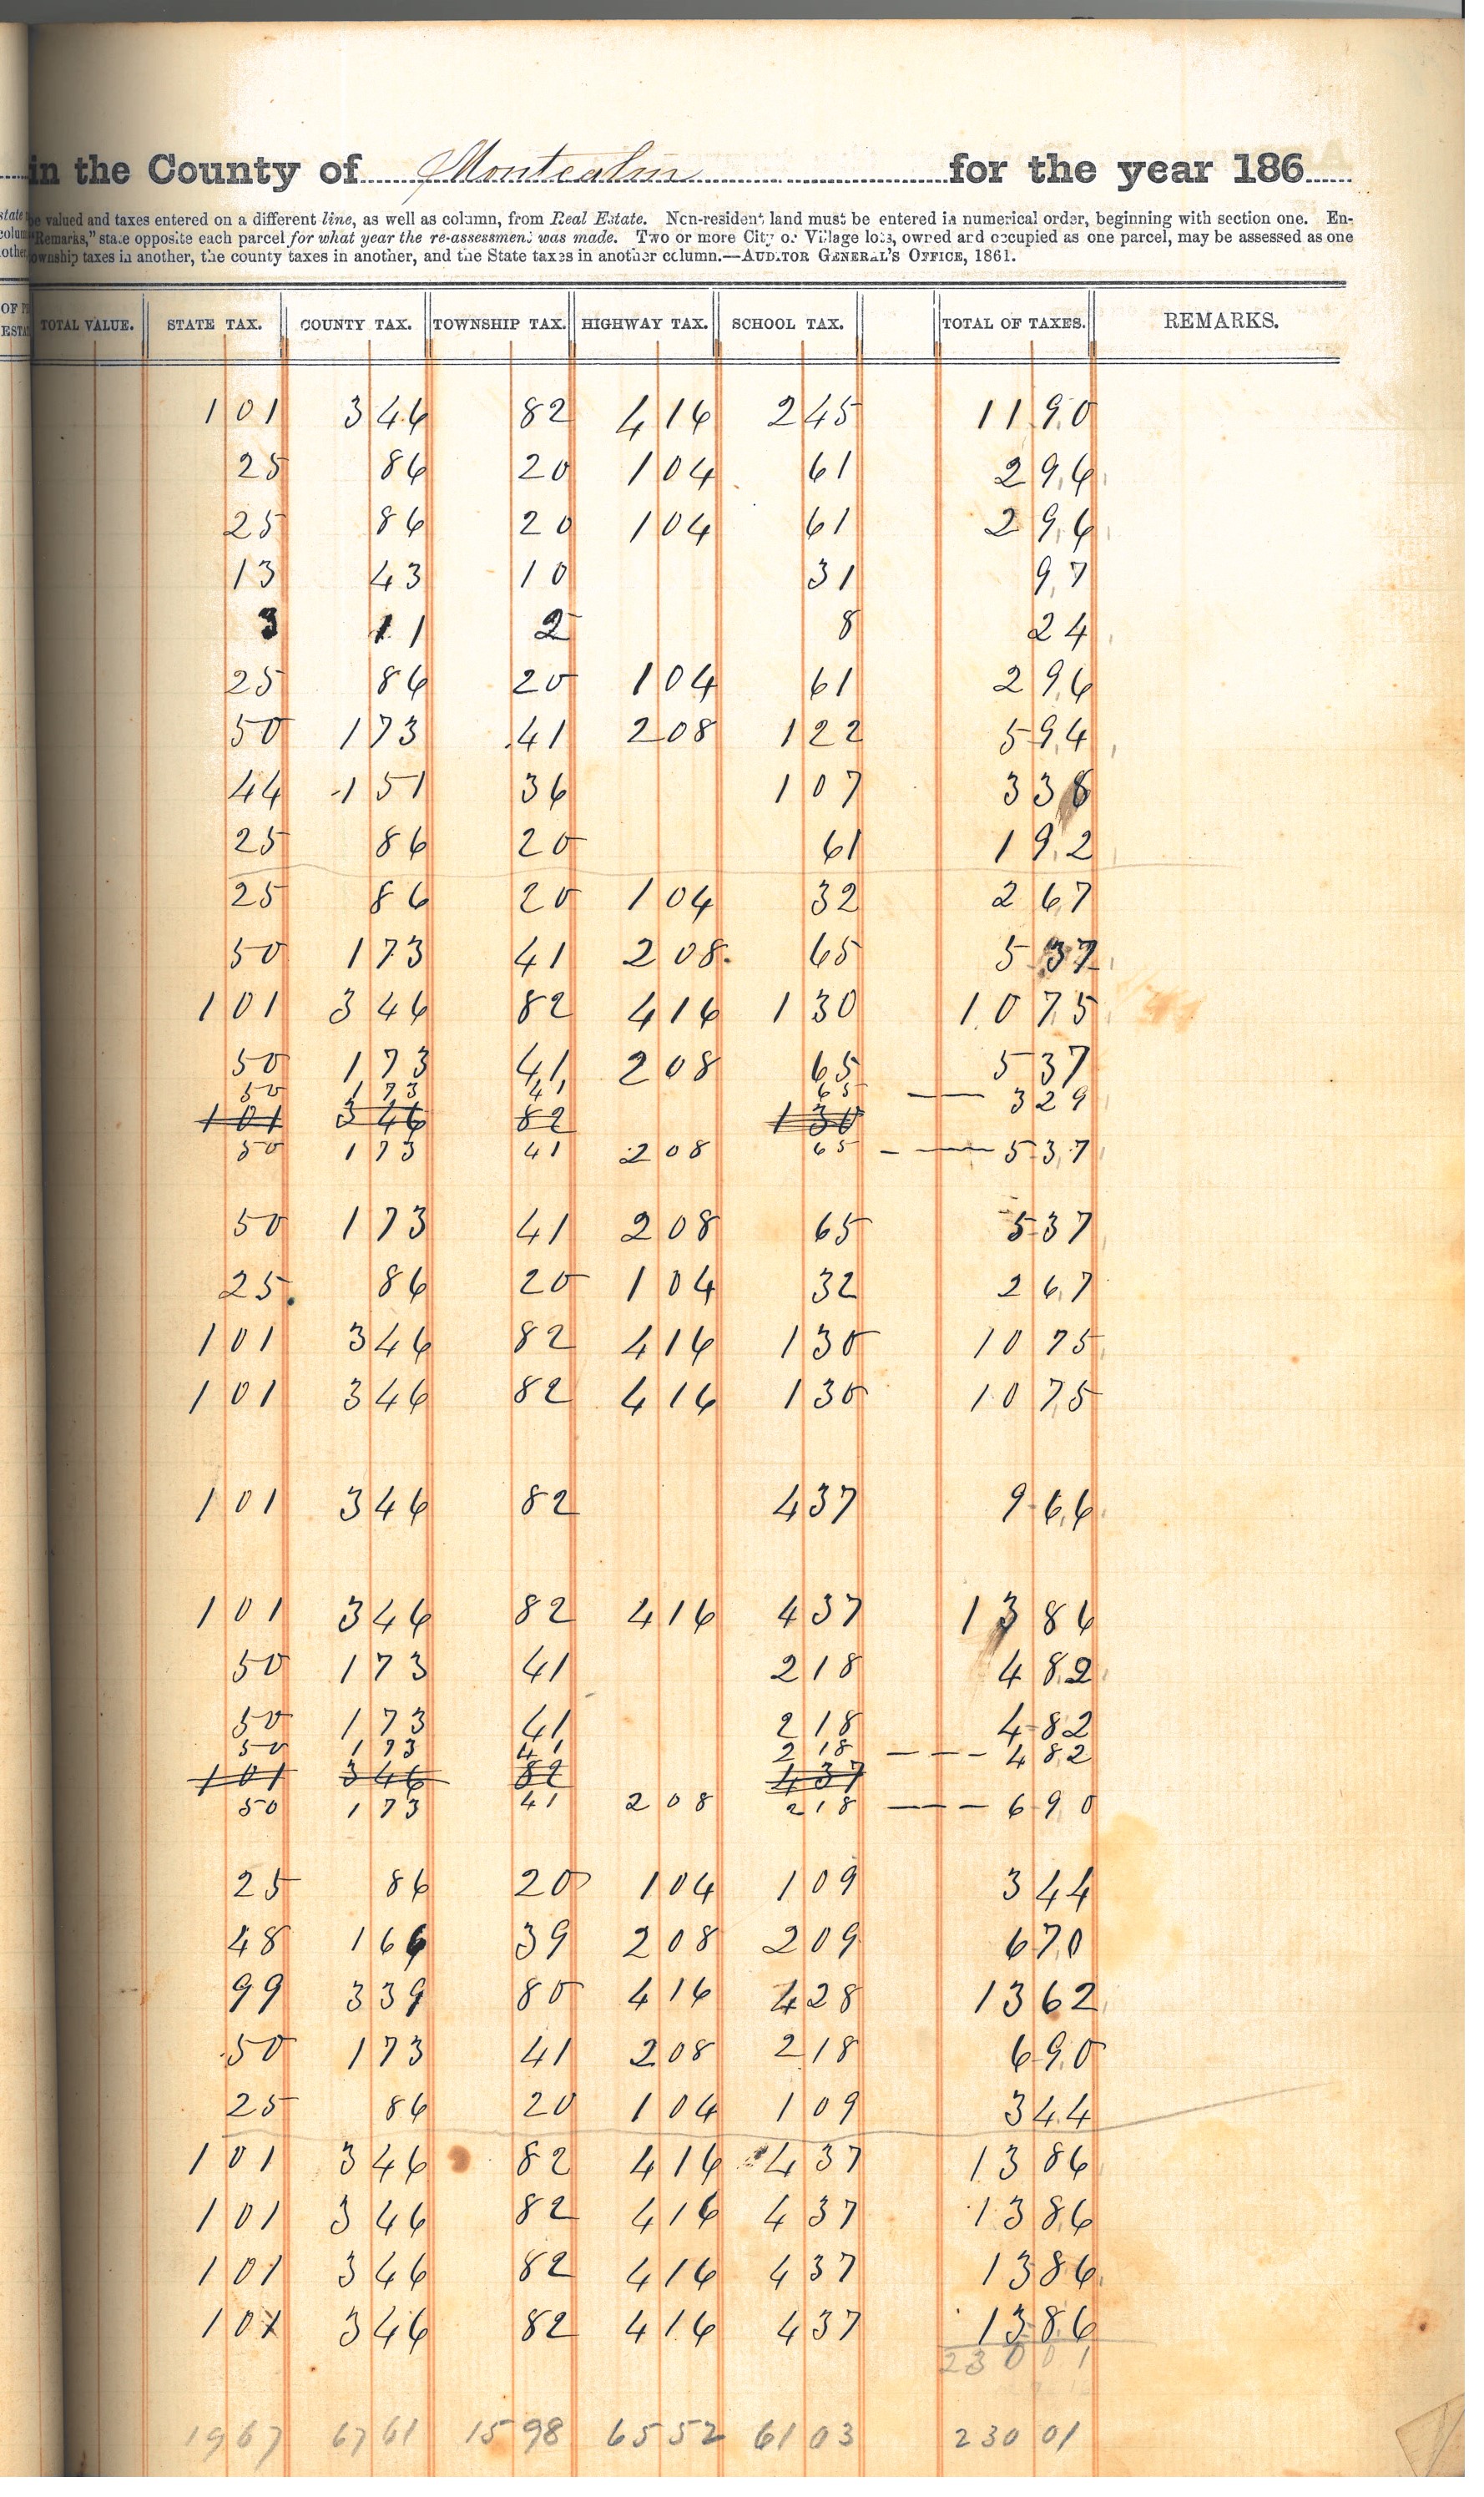 in the County of Montcalm for the year 186
be valued and taxes entered on a different line, as well as column, from Real Estate. Non-resident land must be entered in numerical order, beginning with section one. En-
"Remarks," state opposite each parcel for what year the re-assessment was made. Two or more City or Village lots, owned and occupied as one parcel, may be assessed as one
ownship taxes in another, the county taxes in another, and the State taxes in another column.—AUDITOR GENERAL'S OFFICE, 1861.
TOTAL VALUE. STATE TAX. COUNTY TAX. TOWNSHIP TAX. HIGHWAY TAX. SCHOOL TAX. TOTAL OF TAXES. REMARKS.
1 01 3 46 82 4 16 2 45 11 90
25 86 20 1 04 61 2 96
25 86 20 1 04 61 2 96
13 43 10 31 97
3 11 2 8 24
25 86 20 1 04 61 2 96
50 1 73 41 2 08 1 22 5 94
44 1 51 36 1 07 3 38
25 86 20 61 1 92
25 86 20 1 04 32 2 67
50 1 73 41 2 08 65 5 37
1 01 3 46 82 4 16 1 30 10 75
50 1 73 41 2 08 65 5 37
50 1 73 41 65 — 3 29
1 01 3 46 82 1 30
50 1 73 41 2 08 65 - — 5 37
50 1 73 41 2 08 65 5 37
25 86 20 1 04 32 2 67
1 01 3 46 82 4 16 1 30 10 75
1 01 3 46 82 4 16 1 30 10 75
1 01 3 46 82 4 37 9 66
1 01 3 46 82 4 16 4 37 13 86
50 1 73 41 2 18 4 82
50 1 73 41 2 18 4 82
50 1 73 41 2 18 — - - 4 82
1 01 3 46 82 4 37
50 1 73 41 2 08 2 18 — - - 6 90
25 86 20 1 04 1 09 3 44
48 1 66 39 2 08 2 09 6 70
99 3 39 80 4 16 4 28 13 62
50 1 73 41 2 08 2 18 6 90
25 86 20 1 04 1 09 3 44
1 01 3 46 82 4 16 4 37 13 86
1 01 3 46 82 4 16 4 37 13 86
1 01 3 46 82 4 16 4 37 13 86
1 01 3 46 82 4 16 4 37 13 86
230 01
19 67 67 61 15 98 65 52 61 03 230 01